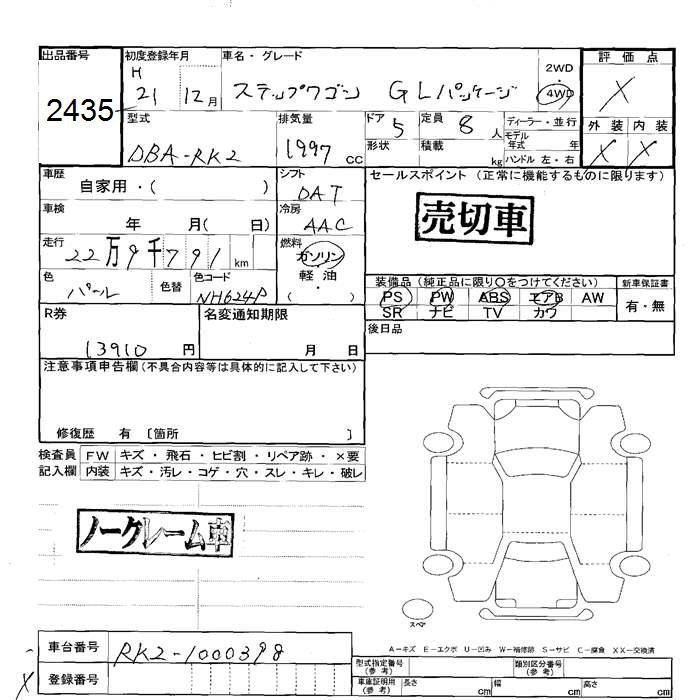 出品番号 初度登録年月 車名・グレード 2WD ・ 4WD 評価点
2435 H 21 12月 ステップワゴン GLパッケージ X
型式 排気量 ドア 定員 ディーラー・並行 外装 内装
DBA-RK2 1997 CC 5 8 人 モデル年式 年 X X
形状 積載 kg ハンドル 左・右
車歴 シフト セールスポイント (正常に機能するものに限ります)
自家用・( ) DAT
車検 冷房 売切車
年 月( 日) AAC
走行 燃料
22万9千791 km ガソリン
軽油
・
( )
色 色替 色コード 装備品 (純正品に限り○をつけてください) 新車保証書
パール NH624P PS PW ABS エアB AW 有・無
SR ナビ TV カワ
R券 名変通知期限 後日品
13910 円 月 日
注意事項申告欄(不具合内容等は具体的に記入して下さい)
修復歴 有 〔箇所 〕
検査員 FW キズ・飛石・ヒビ割・リペア跡・×要
記入欄 内装 キズ・汚レ・コゲ・穴・スレ・キレ・破レ
ノークレーム車
スペア
A−キズ E−エクボ U−凹み W−補修跡 S−サビ C−腐食 XX−交換済
車台番号 RK2-1000398
登録番号
X
型式指定番号(参考) 類別区分番号(参考)
車庫証明用(参考) 長さ cm 幅 cm 高さ cm